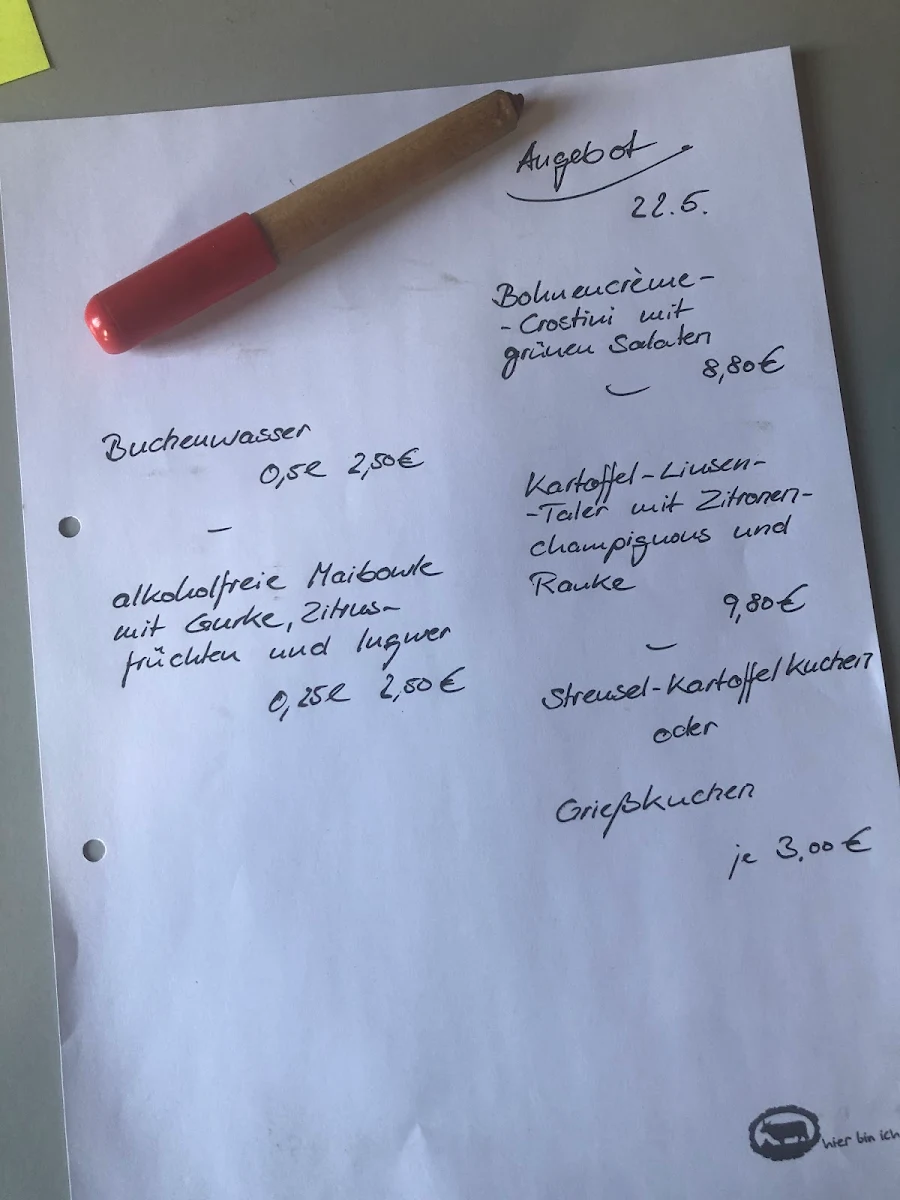 Angebot
22.5.
Bohnencrème-
-Crostini mit
grünen Salaten
8,80€
Kartoffel-Linsen-
-Taler mit Zitronen-
champignons und
Rauke
9,80€
Streusel-Kartoffelkuchen
oder
Grießkuchen
je 3,00€
Buchenwasser
0,5l 2,50€
alkoholfreie Maibowle
mit Gurke, Zitrus-
früchten und Ingwer
0,25l 2,50€
hier bin ich